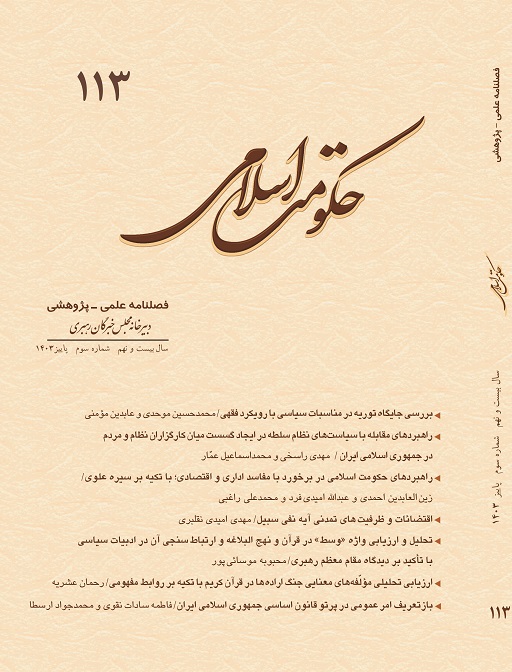 ۱۱۳
حکومت اسلامی
فصلنامه علمی - پژوهشی
دبیرخانه مجلس خبرگان رهبری
سال بیست و نهم شماره سوم پاییز ۱۴۰۳
بررسی جایگاه توریه در مناسبات سیاسی با رویکرد فقهی / محمدحسین موحدی و عابدین مؤمنی
راهبردهای مقابله با سیاست‌های نظام سلطه در ایجاد گسست میان کارگزاران نظام و مردم
در جمهوری اسلامی ایران / مهدی راسخی و محمداسماعیل عمّار
راهبردهای حکومت اسلامی در برخورد با مفاسد اداری و اقتصادی؛ با تکیه بر سیره علوی /
زین‌العابدین احمدی و عبدالله امیدی‌فرد و محمدعلی راغبی
اقتضائات و ظرفیت های تمدنی آیه نفی سبیل / مهدی امیدی نقلبری
تحلیل و ارزیابی واژه «وسط» در قرآن و نهج البلاغه و ارتباط سنجی آن در ادبیات سیاسی
با تأکید بر دیدگاه مقام معظم رهبری / محبوبه موسائی‌پور
ارزیابی تحلیلی مؤلّفه‌های معنایی جنگ اراده‌ها در قرآن کریم با تکیه بر روابط مفهومی / رحمان عشریه
بازتعریف امر عمومی در پرتو قانون اساسی جمهوری اسلامی ایران / فاطمه سادات نقوی و محمدجواد ارسطا
فصلنامه علمی - پژوهشی
حکومت اسلامی
سال بیست و نهم شماره سوم پاییز ۱۴۰۳
۱۱۳